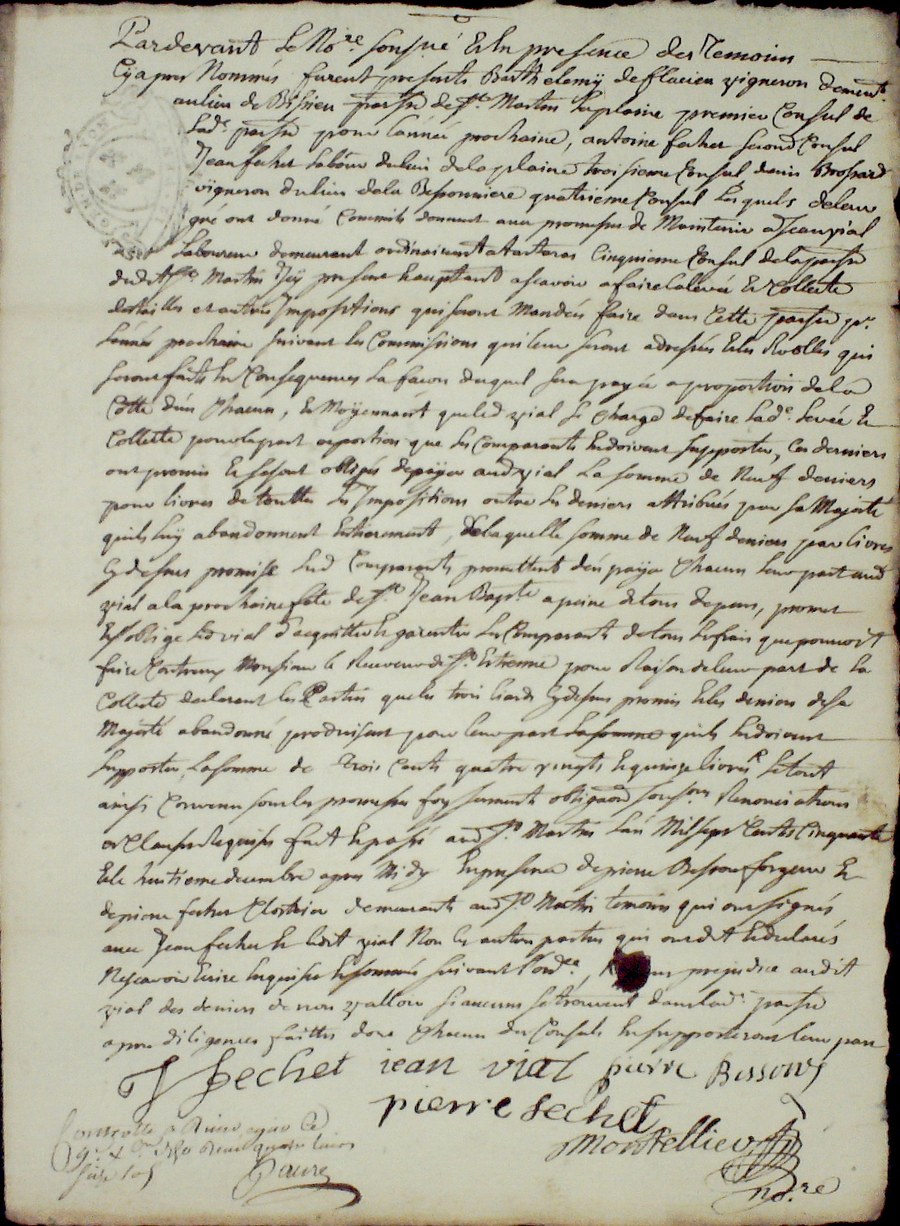 Pardevant le No.re soussigé Et En presence des Temoins
Cy apres Nommés furent presents Barthelemy deflacieu vigneron demeut.
au lieu de Bissieu parsse de St Martin laplaine premier Consul de
lad.e parsse pour l'année prochaine, antoine fechet second Consul
Jean fechet labour du lieu delaplaine troisieme Consul denis Brossard
vigneron du lieu dela Bessonniere quatrieme Consul Lesquels deleur
gré ont donné Commis donnent avec promesse de Maintenir a Jean vial
Laboureur demeurant ordinairement a Cinquieme Consul delaparsse
dudit St Martin Icy present Eacceptant ascavoir afaire lalevée Et Collecte
destailles et autres Impositions qui seront Mandées faire dans Cette parsse pr.
l'année prochaine suivant les Commissions qui leur seront adressées Et les Roolles qui
seront faits En Consequences La facon duquel sera payée a proportion dela
Cotte d'un Chacun, Et Moÿennant queled vial se Charge defaire lad.e levée Et
Collecte pour lapart et portion que les Comparants Endoivent supporter, Ces derniers
ont promis Et sesont obligés depayer aud vial La somme de Neuf deniers
pour livres de touttes les Impositions outre les deniers attribués par sa Majesté
quils luy abandonnent Entierement, delaquelle somme de Neuf deniers par livres
Cydessus promise lesd Comparants promettent d'en payer Chacun leur part aud
vial a la prochaine fete de St Jean Bapte apeine detous depens, promet
Et s'oblige led vial d'acquitter Et garentir les Comparants detous lesfrais que pourroit
faire Contreux Monsieur le Receveur de St Estienne pour Raison deleur part de la
Collecte declarant les Parties que les trois liards Cydessus promis Et les deniers desa
Majesté abandonné produisent pour leur part lasomme quils Endoivent
supporter, Lasomme de Trois Cents quatre vingts Et quinze livres Le tout
ainsi Convenu sous les promesses foy serments obligaons Renonciations
et Clauses Requises fait Et passé aud St Martin l'an Mil sept Cents Cinquante
Et le huitieme decembre apres Midy En presence depierre Besson forgeur Et
depierre fechet demeurants aud St Martin temoins qui ont signés
avec Jean fechet Et ledit vial Non les autres parties qui ont dit Et declarés
Nescavoir Ecrire Enquises Et sommés suivant l'ord.ce, prejudice audit
vial des deniers de non valleur si aucuns setrouvent dans lad. parsse
apres diligences faittes dont Chacun des Consuls Ensupporteront leur part
J fechet jean vial pierre Besson
pierre fechet
Montellier
no.re
Controllé a Rivedegier le
9e Xbre 1750
Faure